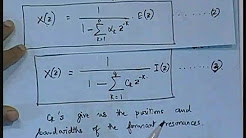 X(z) = 1 / (1 - Σ_{k=1} α_k z^{-k}) · E(z) ------ (2)
X(z) = 1 / (1 - Σ_{k=1} C_k z^{-k}) I(z) ------ (3)
C_k's give us the positions and
bandwidths of the formant resonances.